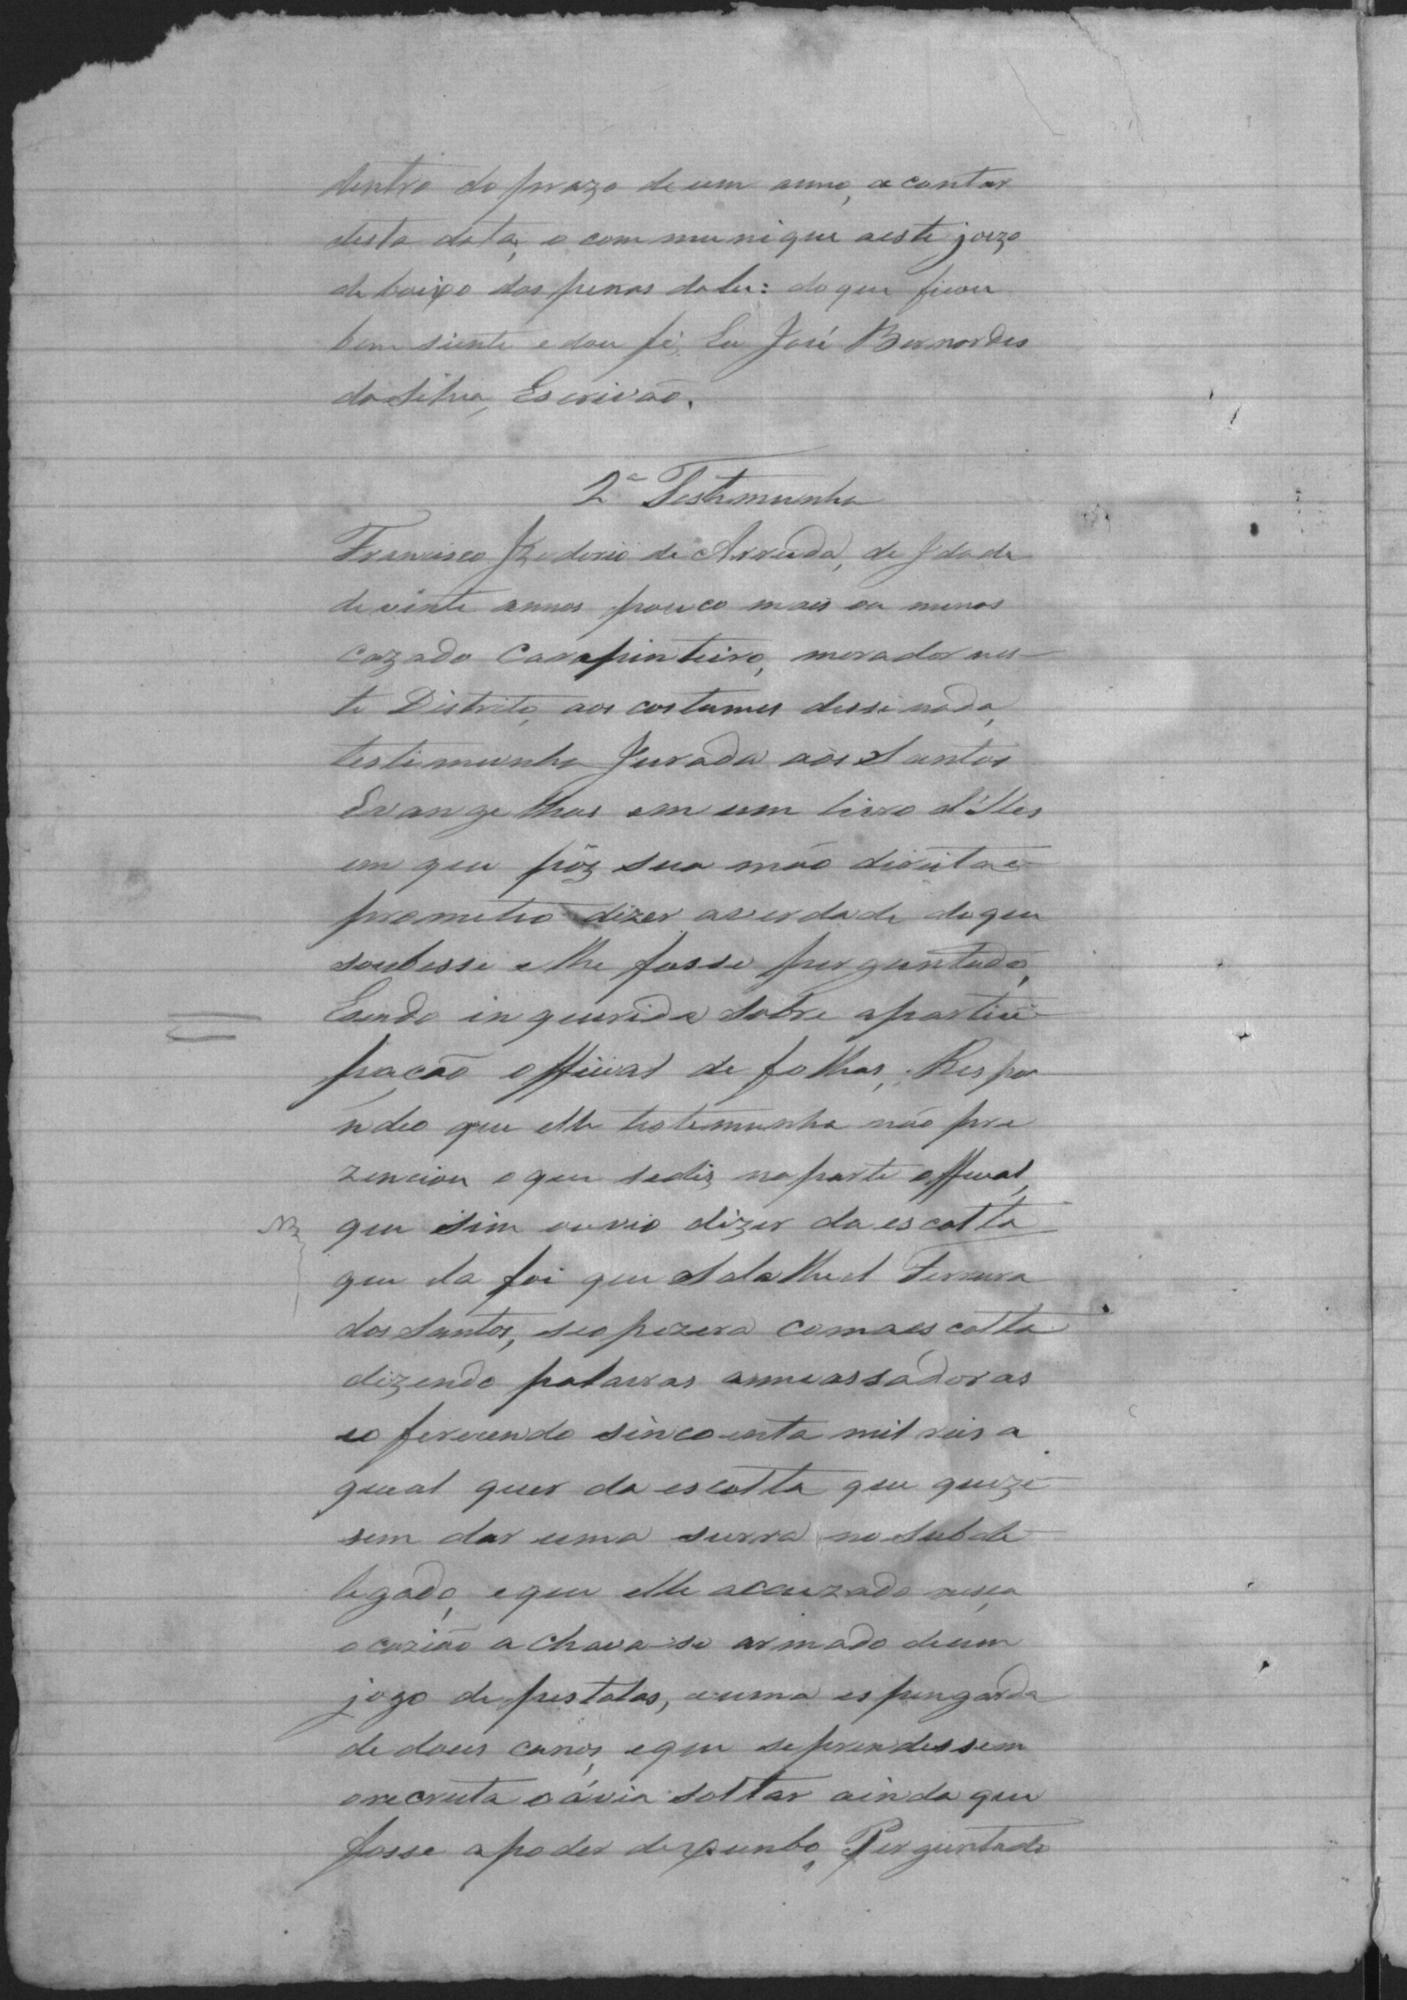 dentro do prazo de um anno, a contar
desta data, o communique aeste juizo
de baixo das penas dalei: doque ficou
bem siente e dou fé. Eu José Bernardes
da Silva, Escrivão.
2ª Testemunha
Francisco Izodorio de Arruda, de Idade
de vinte annos pouco mais ou menos
cazado Carapinteiro, morador nes-
te Distrito, aos costumes disse nada,
testimunha Jurada aos Santos
Evangelhos em um livro d'elles
em que pôz sua mão direita e
prometeo dizer averdade doque
soubesse e lhe fosse perguntado,
Esendo inquerida sobre apartici-
pação official de folhas, Respo
ndeo que elle testemunha não pre
zenciou oque sediz naparte official,
que sim ouvio dizer da escolta
que la foi que Salathiel Ferreira
dos Santos, seopuzera comaescolta
dizendo palavras ameassadoras
eoferecendo sincoenta mil reis a
qual quer da escolta que quize-
sem dar uma surra no Subde-
legado, eque elle accuzado nesça
ocazião achava-se armado deum
jogo de pistolas, euma espingarda
de dous canos, eque seprendessem
orecruta oávia soltar ainda que
fosse apoder dexumbo, Perguntado